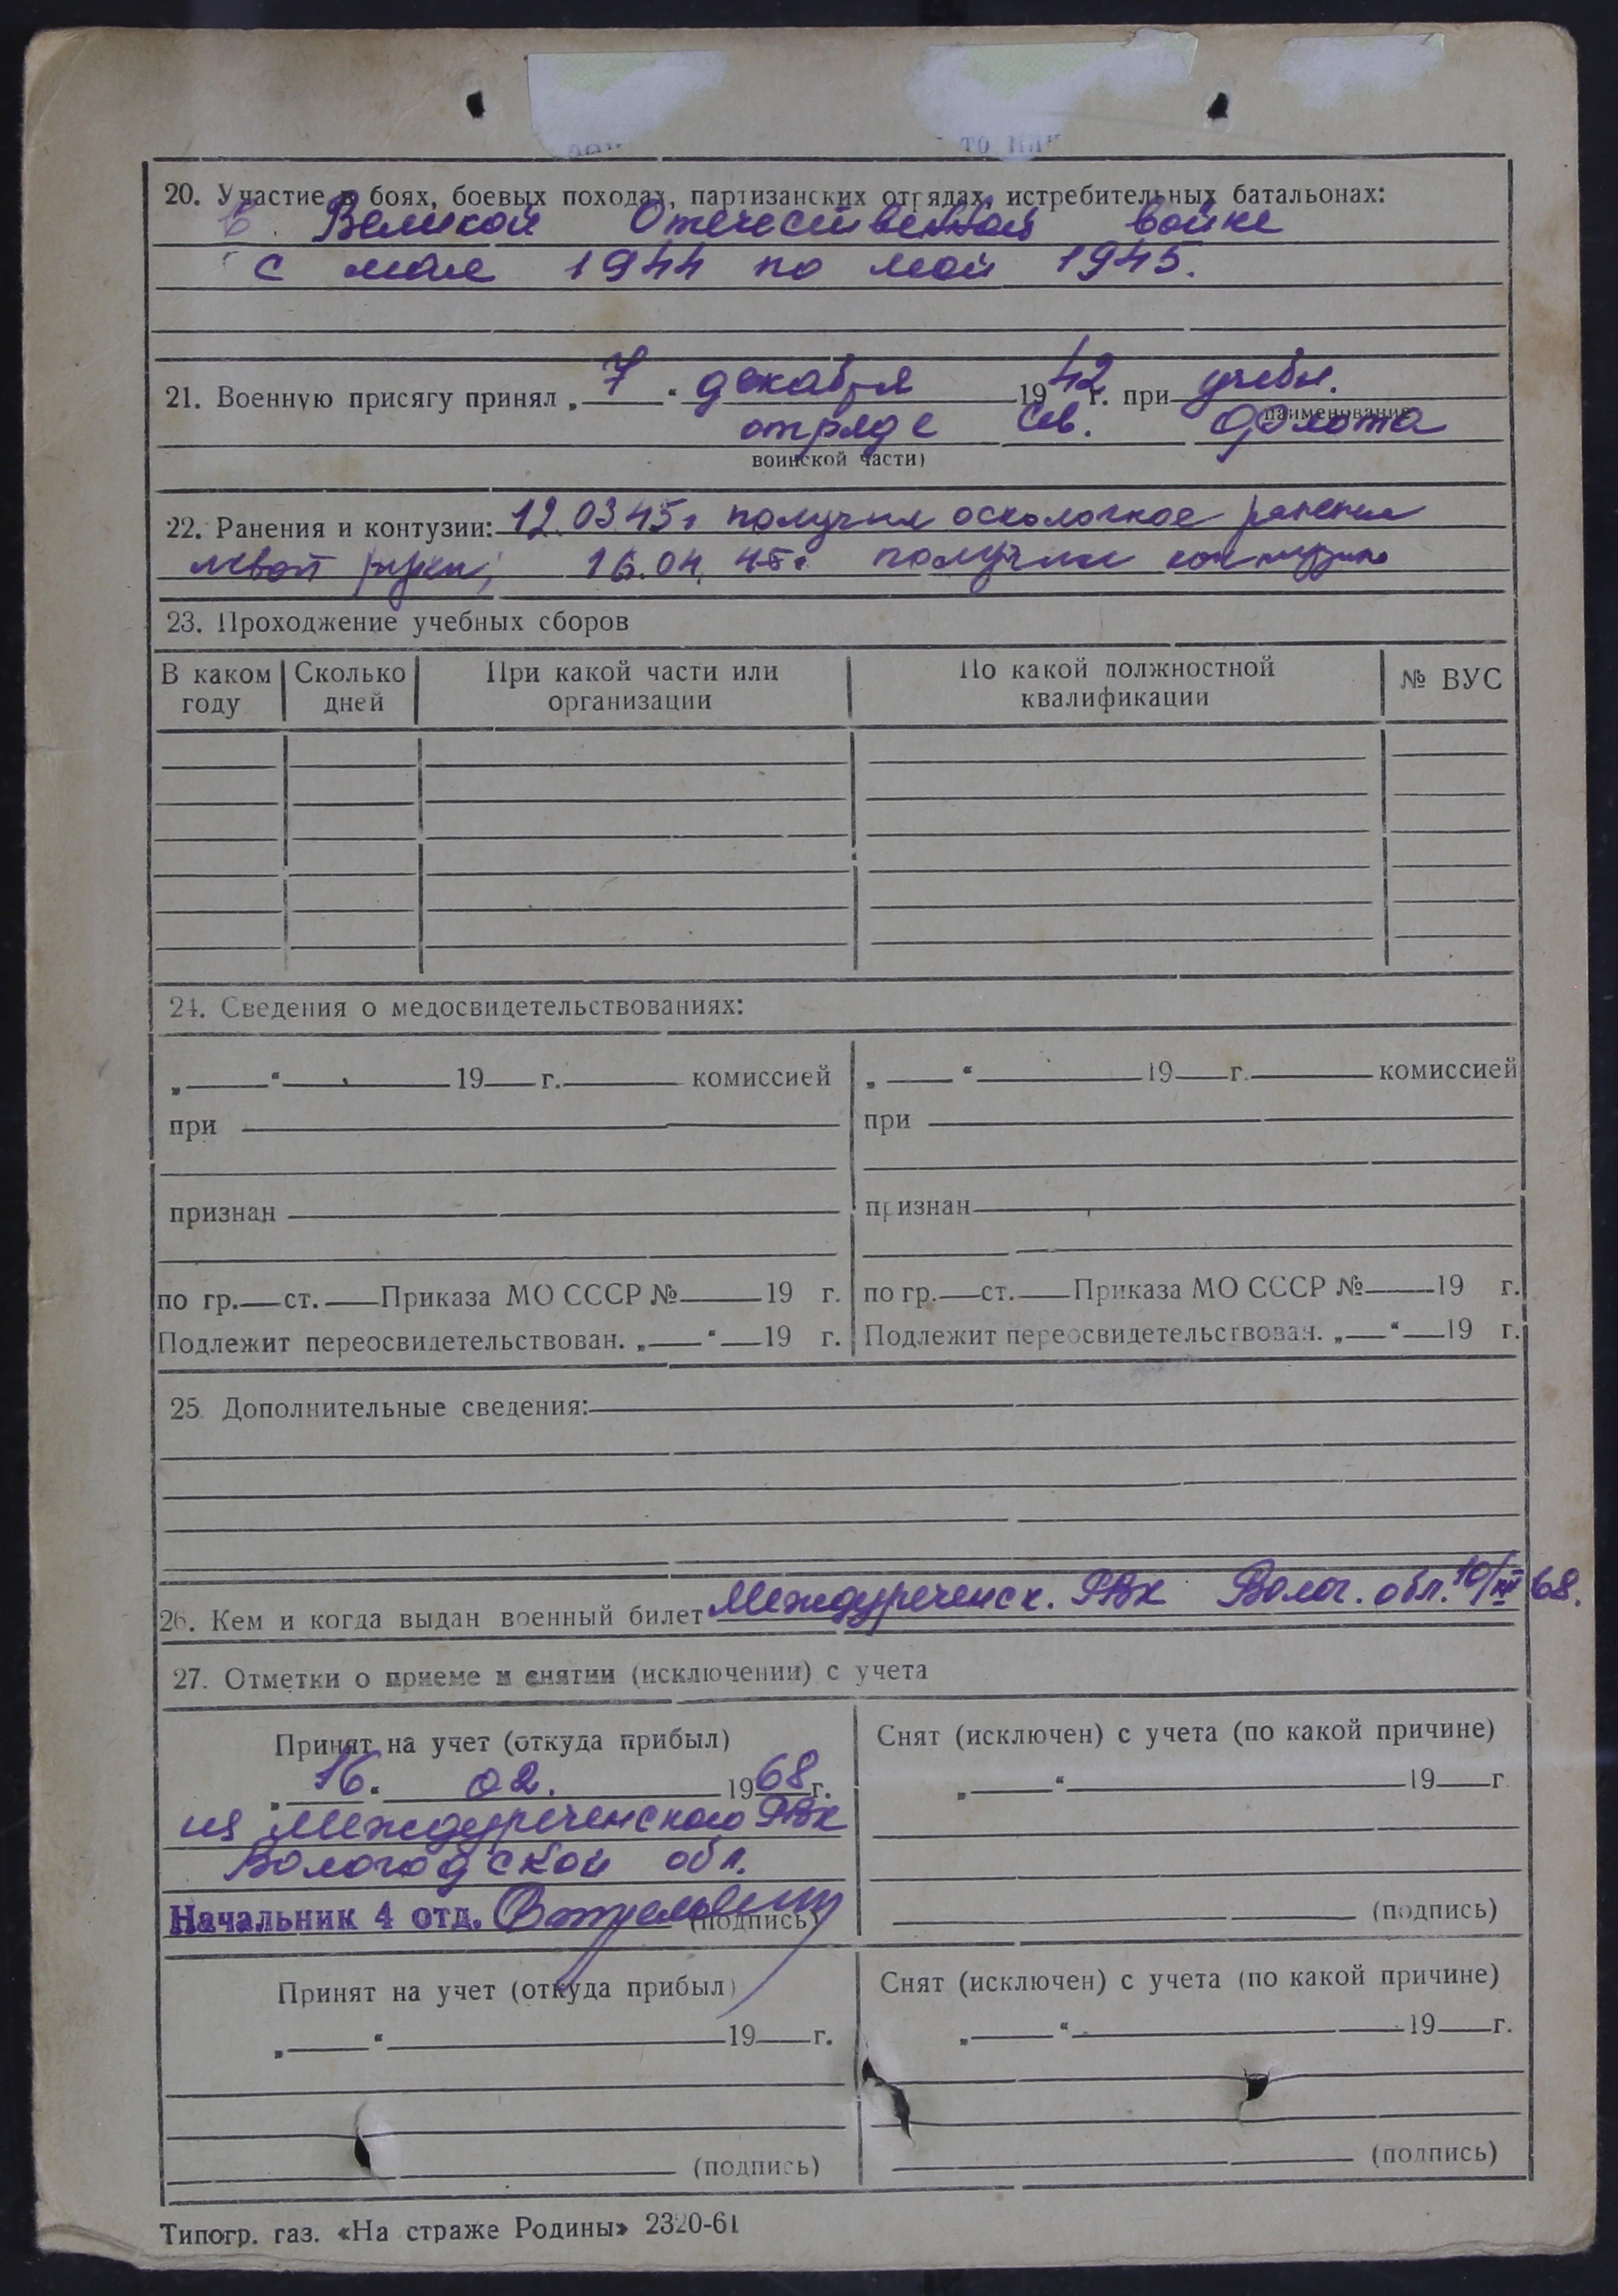 20. Участие в боях, боевых походах, партизанских отрядах, истребительных батальонах:
В Великой Отечественной войне
с мая 1944 по май 1945.
21. Военную присягу принял „ 7 “ декабря 1942 г. при учебн.
(наименование
отряде Сев. флота
воинской части)
22. Ранения и контузии: 12.03 45г получил осколочное ранение
левой руки; 16.04. 45г. получил контузию
23. Прохождение учебных сборов
В каком году Сколько дней При какой части или организации По какой должностной квалификации № ВУС
24. Сведения о медосвидетельствованиях:
„ “ 19 г. комиссией „ “ 19 г. комиссией
при при
признан признан
по гр. ст. Приказа МО СССР № 19 г. по гр. ст. Приказа МО СССР № 19 г.
Подлежит переосвидетельствован. „ “ 19 г. Подлежит переосвидетельствован. „ “ 19 г.
25. Дополнительные сведения:
26. Кем и когда выдан военный билет Междуреченск. РВК Волог. обл. 10/III 68.
27. Отметки о приеме и снятии (исключении) с учета
Принят на учет (откуда прибыл) Снят (исключен) с учета (по какой причине)
„ 16. “ 02. 1968 г. „ “ 19 г.
из Междуреченского РВК
Вологодской обл.
Начальник 4 отд. (подпись) (подпись)
Принят на учет (откуда прибыл) Снят (исключен) с учета (по какой причине)
„ “ 19 г. „ “ 19 г.
(подпись) (подпись)
Типогр. газ. «На страже Родины» 2320-61